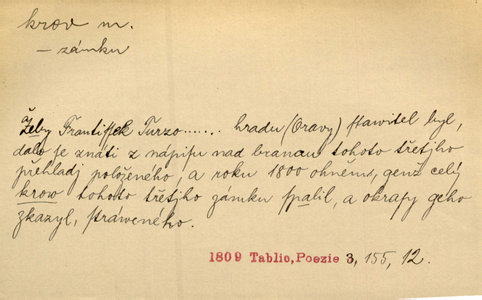 krov m.
– zámku
Žeby Frantiſſek Turzo...... hradu (Oravy) ſtawitel byl,
dalo ſe znáti z nápiſu nad branau tohoto třetjho
přehladj položeného, a roku 1800 ohněm, genž celý
krow tohoto třetjho zámku ſpálil, a okraſy geho
zkazyl, ſtráweného.
1809 Tablic, Poezie 3, 155, 12.